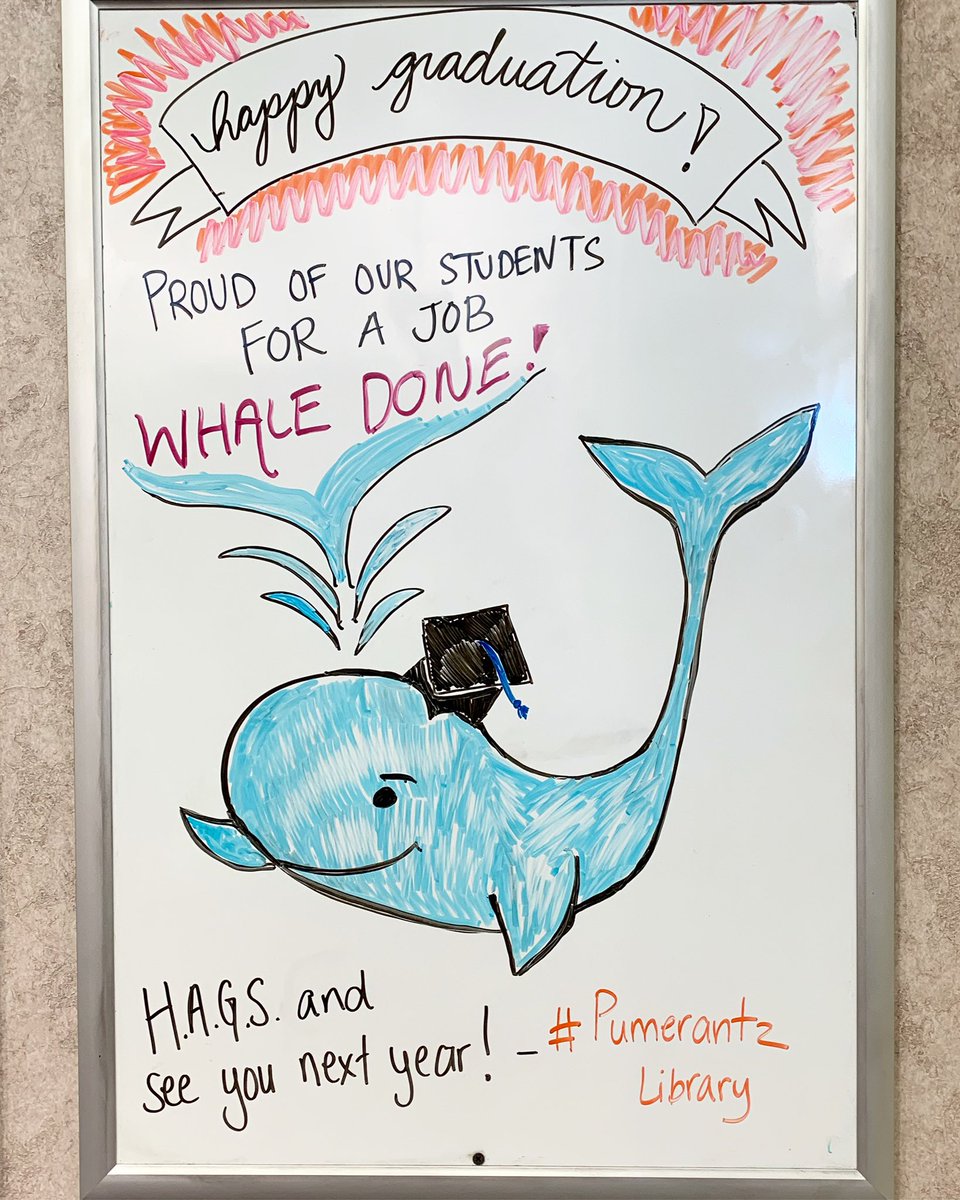 happy graduation!
PROUD OF OUR STUDENTS
FOR A JOB
WHALE DONE!
H.A.G.S. and
see you next year! - #Pumerantz
Library